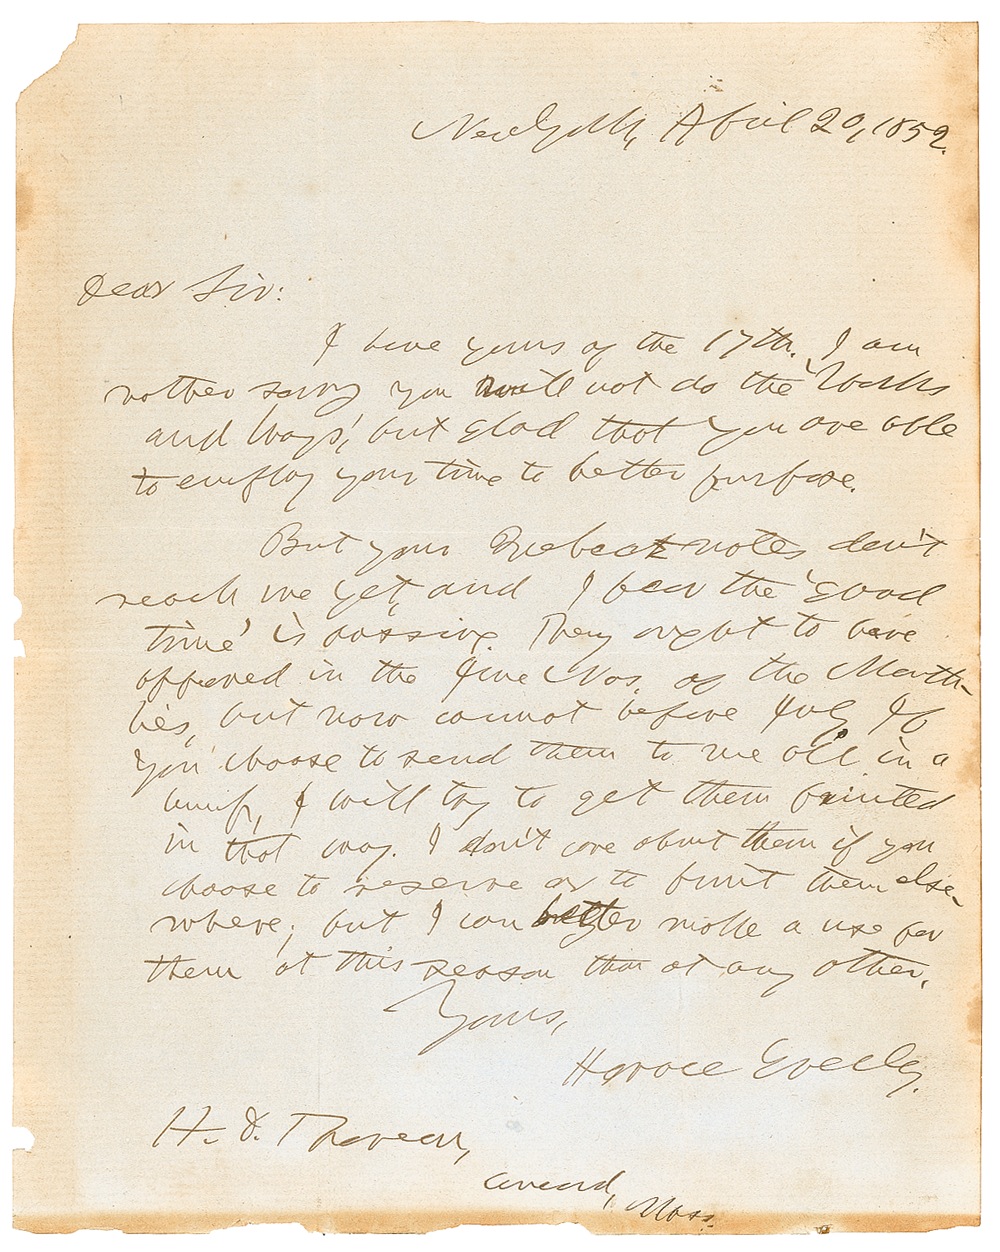 New York, April 20, 1852.
Dear Sir:
I have yours of the 17th. I am
rather sorry you will not do the 'Works
and Ways', but glad that you are able
to employ your time to better purpose.
But your Quebec notes don't
reach me yet, and I fear the 'good
time' is passing. They ought to have
appeared in the June Nos. of the Month-
lies, but now cannot before July. If
you choose to send them to me all in a
lump, I will try to get them printed
in that way. I don't care about them if you
choose to reserve or to print them else-
where; but I can better make a use for
them at this season than at any other.
Yours,
Horace Greeley.
H. D. Thoreau,
Concord,
Mass.